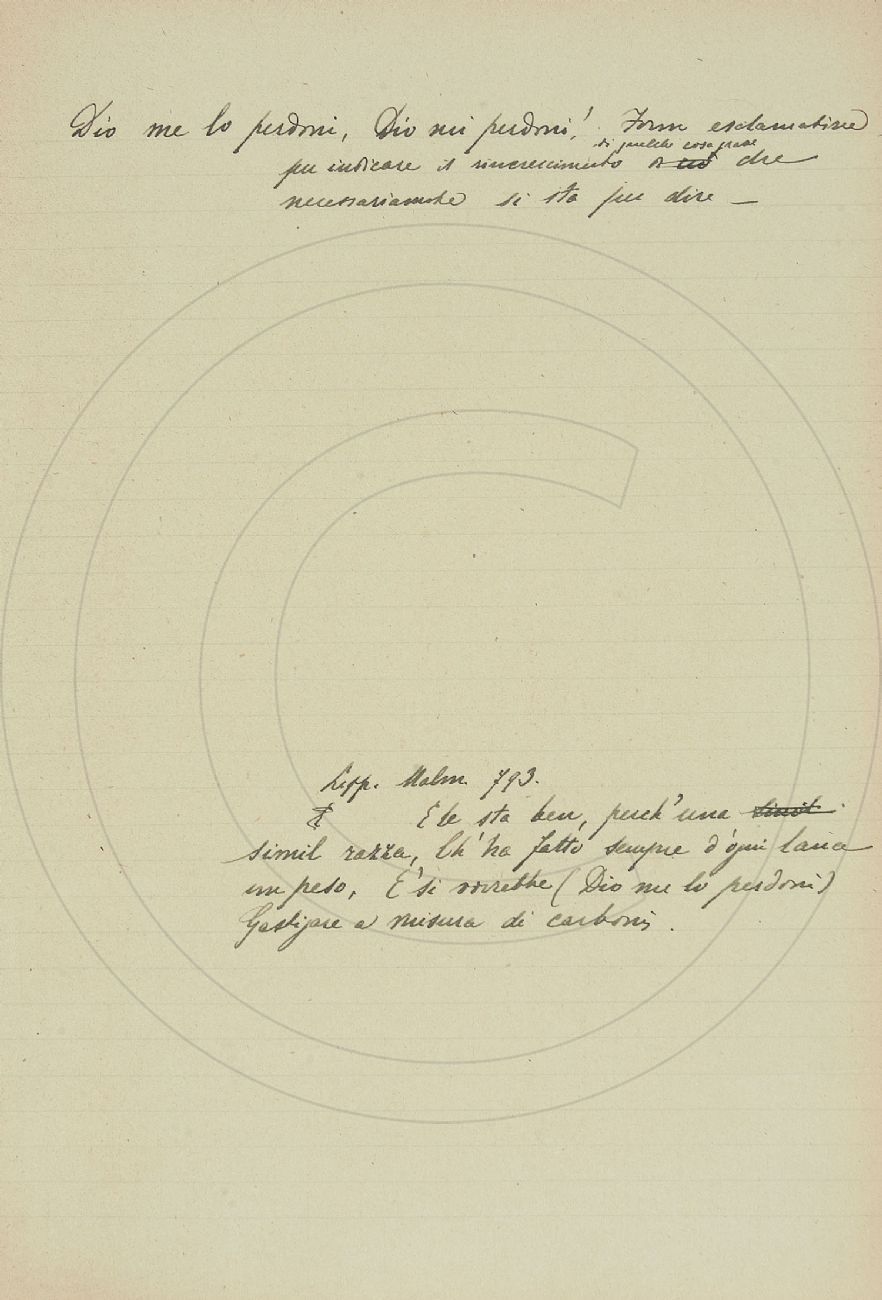 Dio me lo perdoni, Dio mi perdoni! Form esclamative
di qualche cosa grave
per indicare il rincrescimento che
necessariamente si sta per dire —
Lipp. Malm. 793.
E le sta ben, perch'una
simil razza, Ch'ha fatto sempre d'ogni lana
un peso, E' si vorrebbe (Dio me lo perdoni)
Gastigare a misura di carboni.